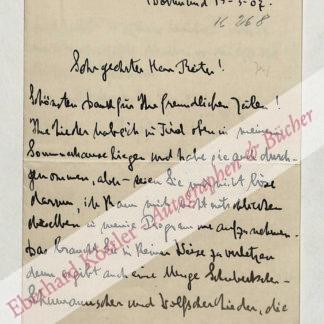 Dortmund 19-3-07.
K 268
Sehr geehrter Herr Reter!
Schönsten Dank für Ihr freundlichen Zeilen!
Ihre Lieder hab ich in Tirol oben in meinem
Sommerhause liegen und habe sie auch durch-
genommen, aber seien Sie mir nicht böse
darum, ich kann mich nicht entschliessen
dieselben in meine Program me aufzunehmen.
Das braucht Sie in keiner Weise zu verletzen
denn es gibt auch eine Menge Schubertscher-
Schumannscher und Wolfscher Lieder, die
Eberhard Köstler - Autographen & Bücher